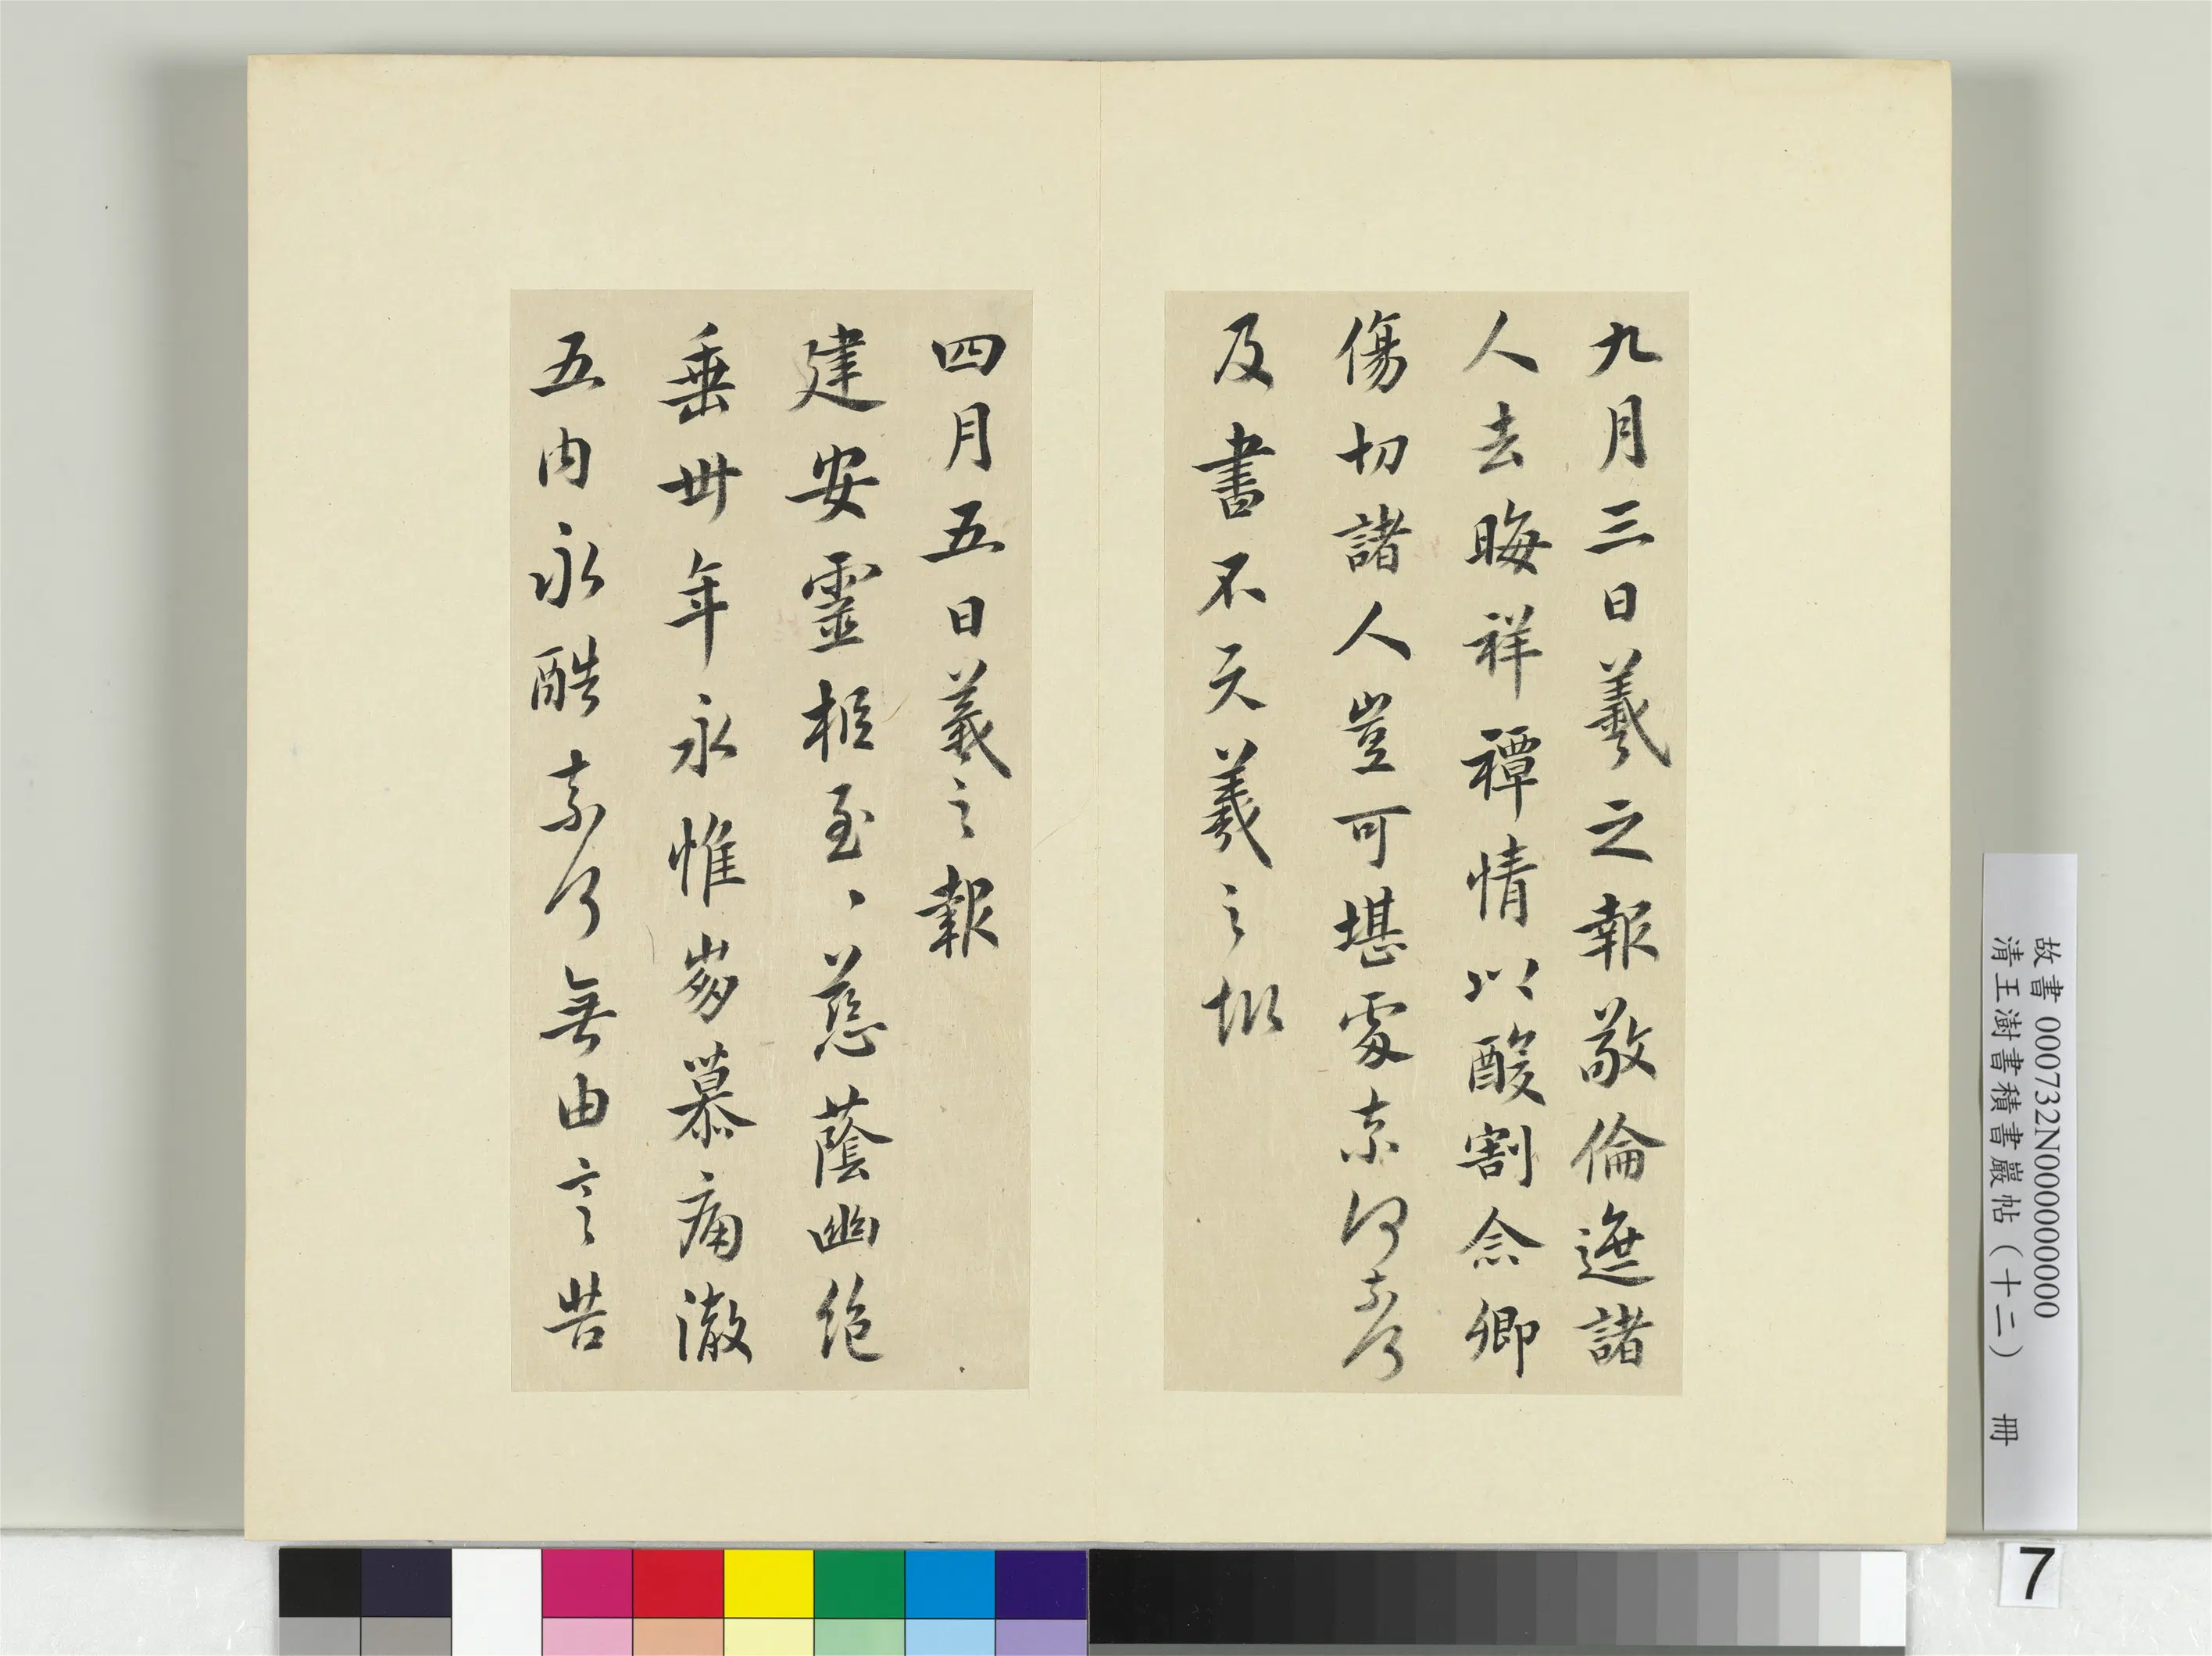 九月三日羲之報敬倫遮諸
人去晦祥禫情以酸割念卿
傷切諸人豈可堪處奈何奈何
及書不次羲之報
四月五日羲之報
建安靈柩至、慈蔭幽絕
垂卅年永惟崩慕痛徹
五內永酷奈何無由言告
故書 000732N000000000
清王澍書積書巖帖(十二) 冊
7